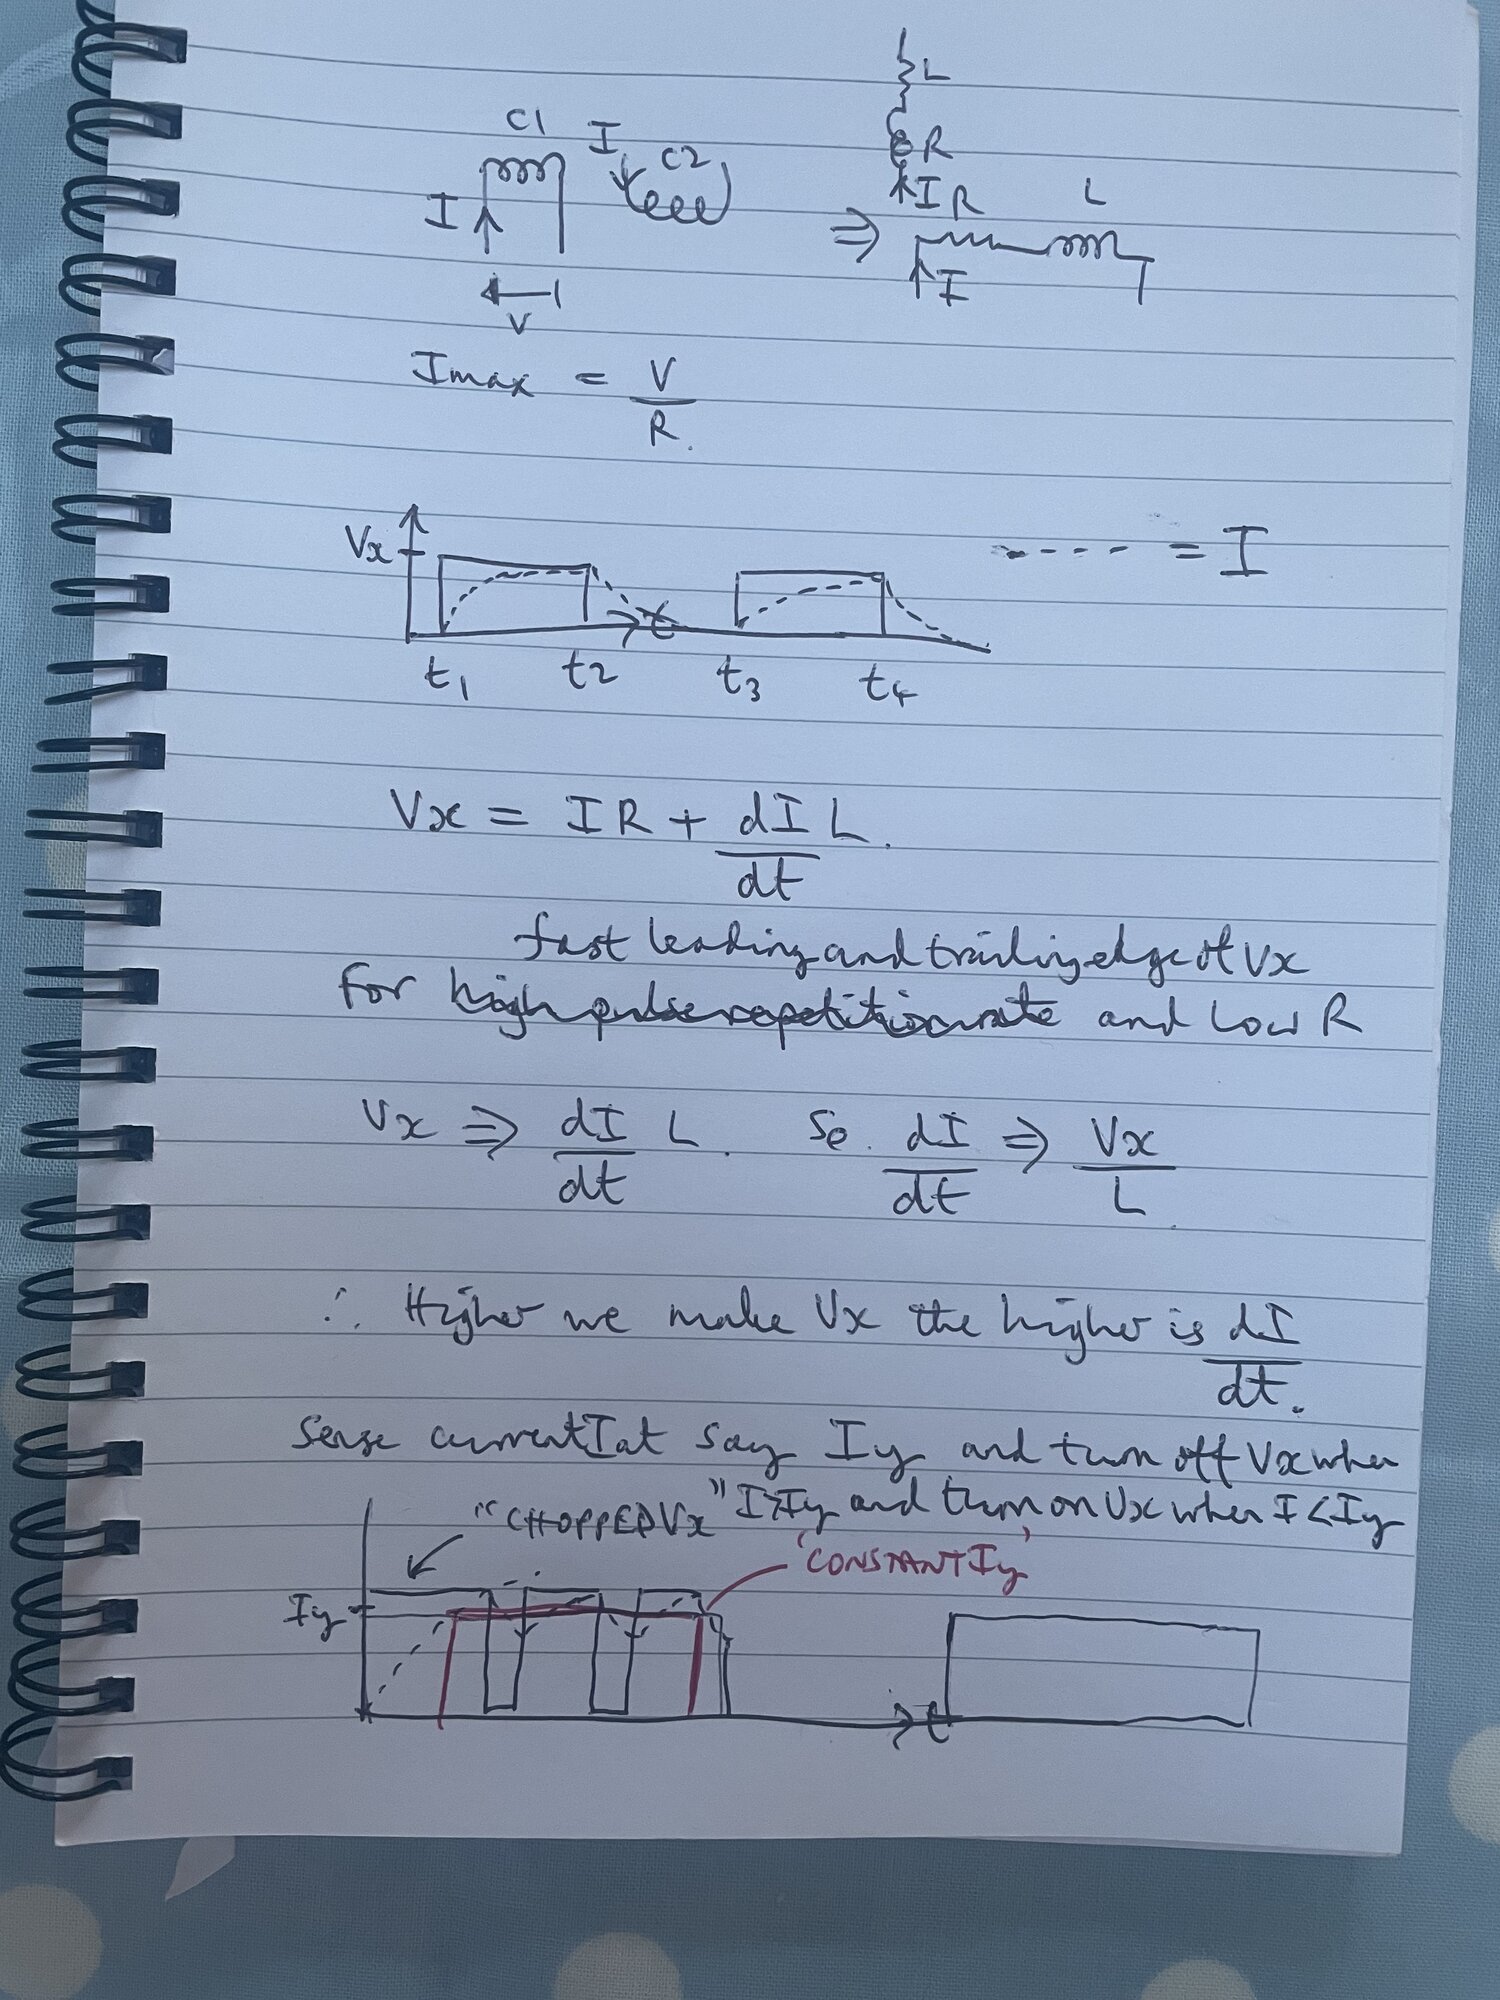 L
C1 I C2 R
I I R L
⇒
I
V
Imax = V/R.
Vx ----- = I
t
t1 t2 t3 t4
Vx = IR + dI/dt L.
fast leading and trailing edge of Vx
For high pulse repetition rate and low R
Vx ⇒ dI/dt L. So. dI/dt ⇒ Vx/L.
∴ Higher we make Vx the higher is dI/dt.
Sense current I at say Iy and turn off Vx when
"CHOPPED Vx" I>Iy and turn on Vx when I<Iy
'CONSTANT Iy'
Iy
t